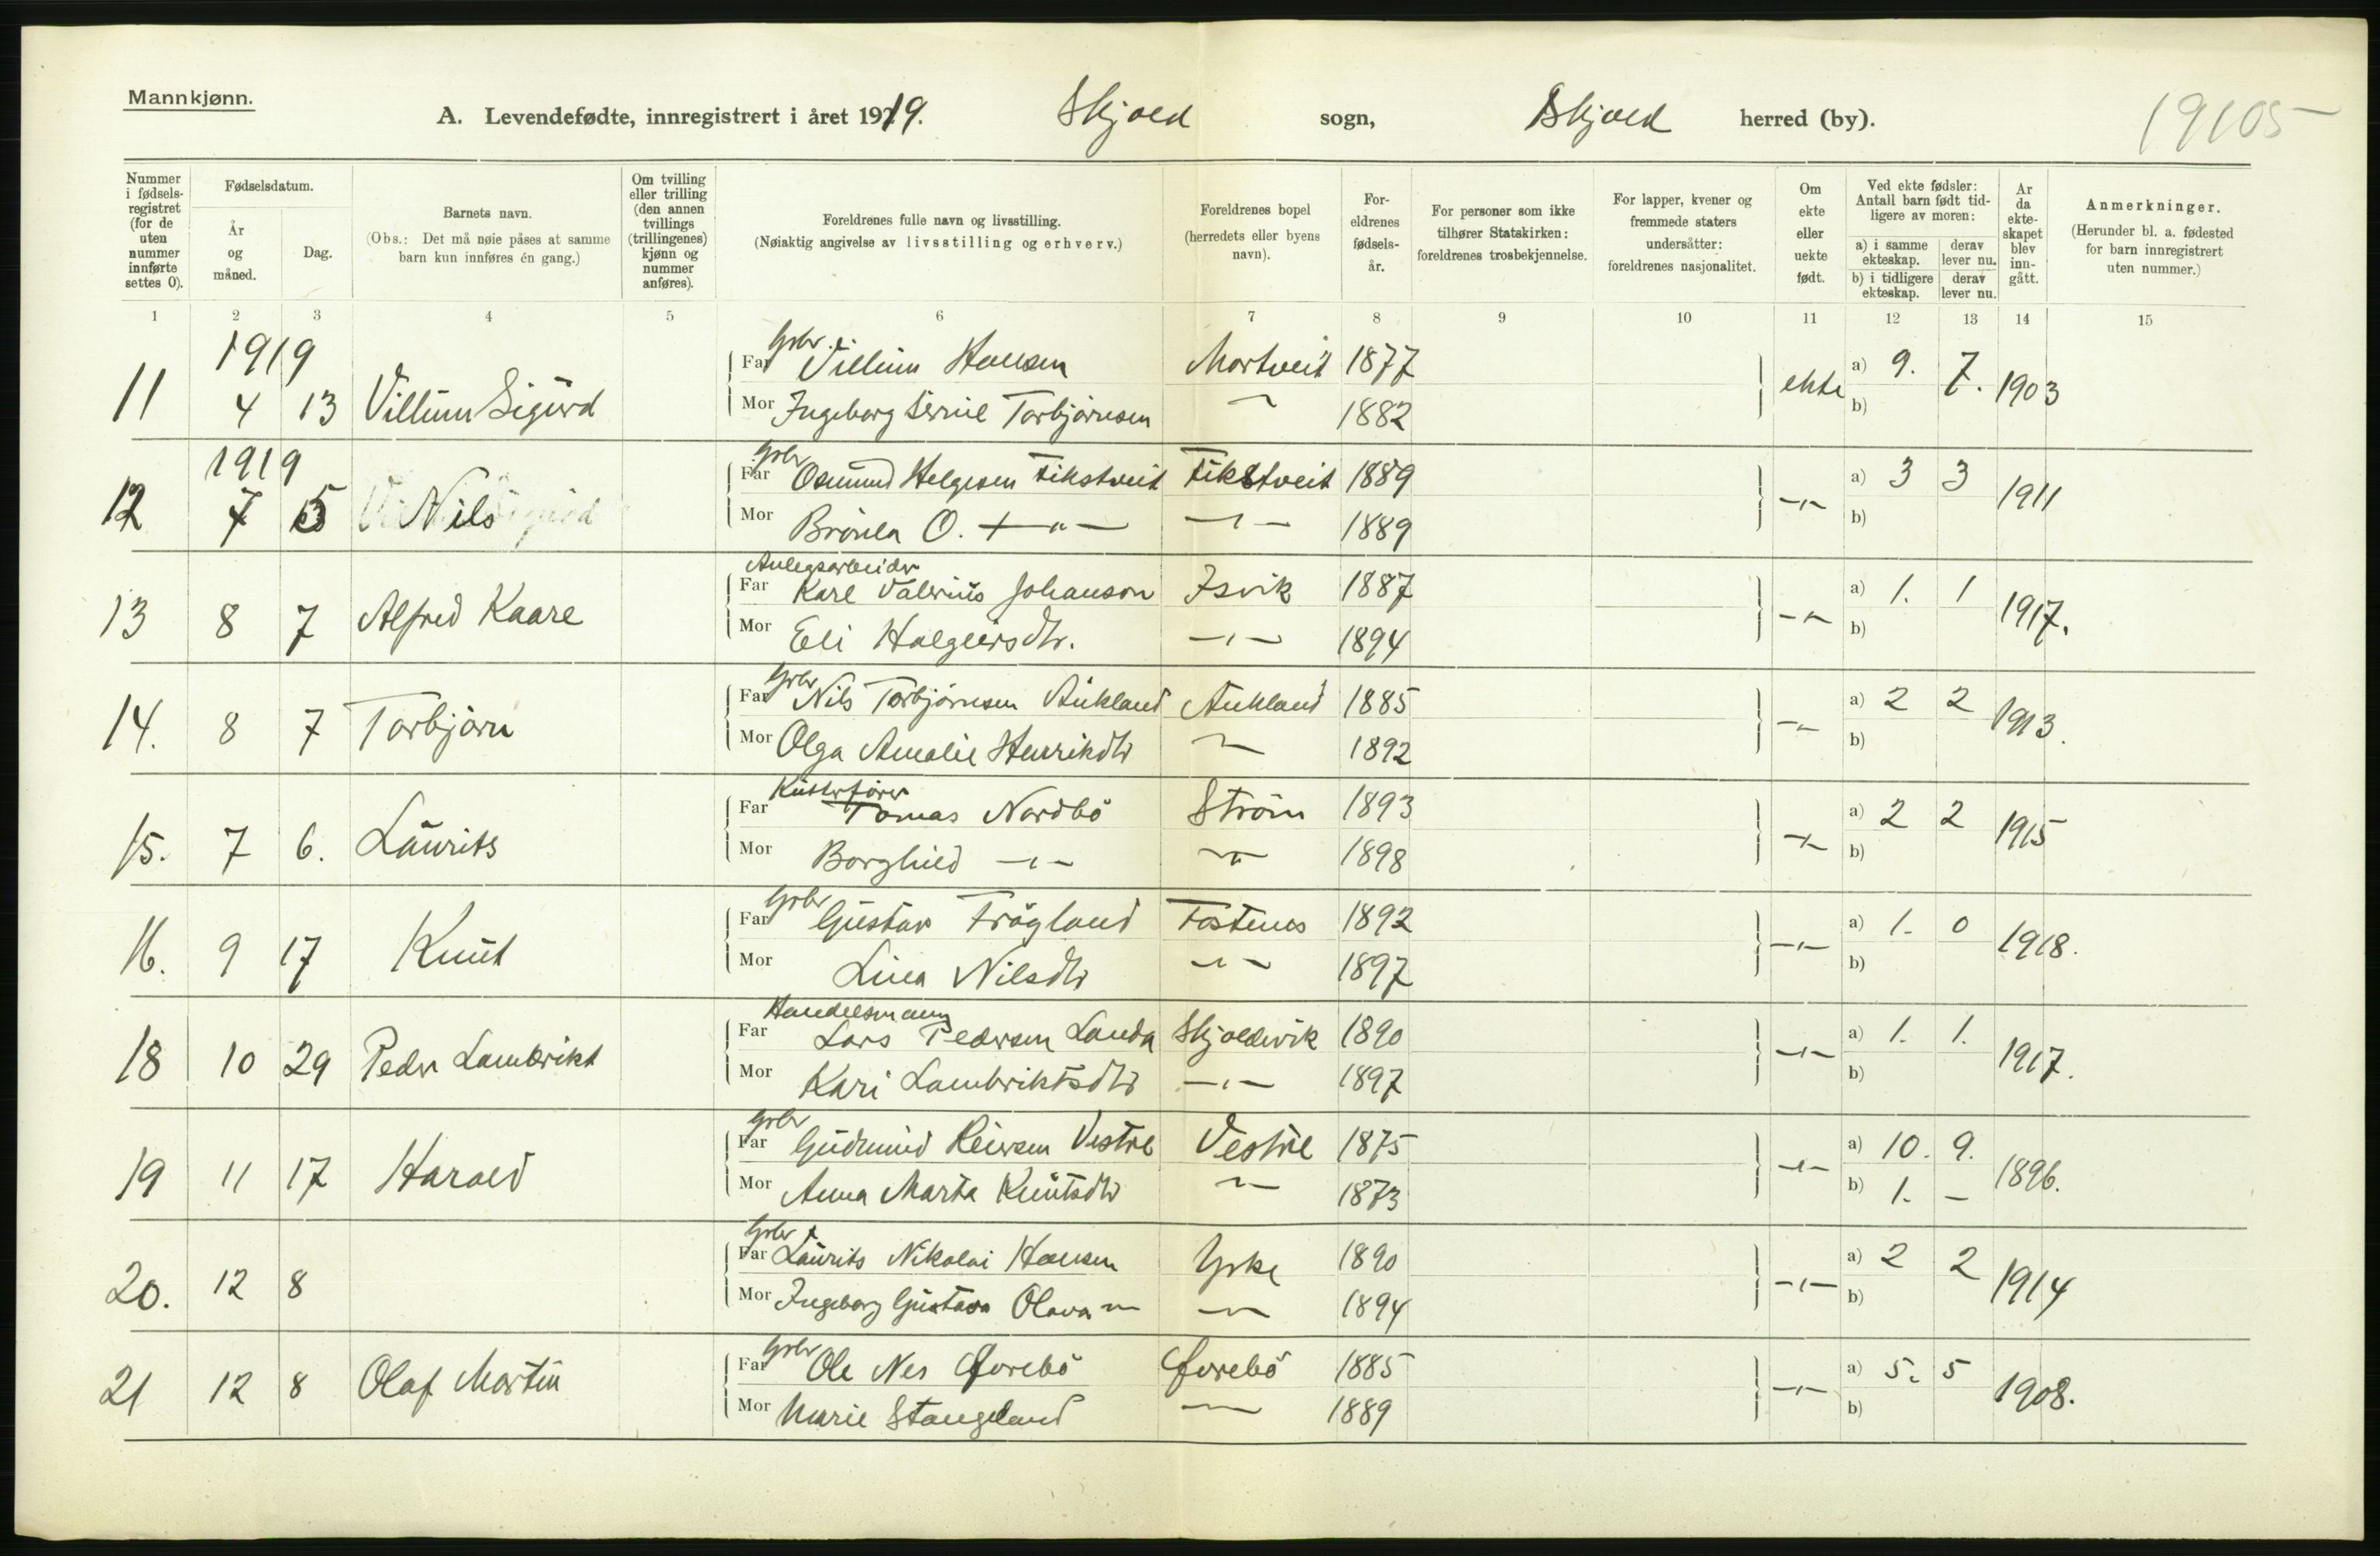 Mannkjønn.
A. Levendefødte, innregistrert i året 1919. Skjold sogn, Skjold herred (by).
19105
Nummer i fødsels-registret (for de uten nummer innførte settes 0).
Fødselsdatum.
År og måned.
Dag.
Barnets navn.
(Obs.: Det må nøie påses at samme barn kun innføres én gang.)
Om tvilling eller trilling (den annen tvillings (trillingenes) kjønn og nummer anføres).
Foreldrenes fulle navn og livsstilling.
(Nøiaktig angivelse av livsstilling og erhverv.)
Foreldrenes bopel (herredets eller byens navn).
For-eldrenes fødsels-år.
For personer som ikke tilhører Statskirken: foreldrenes trosbekjennelse.
For lapper, kvener og fremmede staters undersåtter: foreldrenes nasjonalitet.
Om ekte eller uekte født.
Ved ekte fødsler: Antall barn født tid-ligere av moren:
a) i samme ekteskap.
derav lever nu.
b) i tidligere ekteskap.
derav lever nu.
Ar da ekte-skapet blev inn-gått.
Anmerkninger.
(Herunder bl. a. fødested for barn innregistrert uten nummer.)
1 2 3 4 5 6 7 8 9 10 11 12 13 14 15
1919
Grbr.
Far Villum Hansen Mortveit 1877
11 4 13 Villum Sigurd ekte a) 9. 7. 1903
Mor Ingeborg Serine Torbjørnsen 1882 b)
1919
Grbr
Far Osmund Helgesen Fikstveit Fikstveit 1889
12 7 5 Nils -"- a) 3 3 1911
Mor O. -"- -"- 1889 b)
Anlegsarbeider
Far Karl Valerius Johanson Isvik 1887
13 8 7 Alfred Kaare -"- a) 1. 1 1917.
Mor Eli Halgeirsdtr. -"- 1894 b)
Grbr
Far Nils Torbjørnsen Aukland Aukland 1885
14. 8 7 Torbjørn -"- a) 2 2 1913.
Mor Olga Amalie Henrikdtr -"- 1892 b)
Far Tomas Nordbö Ström 1893
15. 7 6. Laurits -"- a) 2 2 1915
Mor Borghild -"- -"- 1898 b)
Grbr
Far Gustav Frøgland 1892
16. 9 17 Knut -"- a) 1. 0 1918.
Mor Lina Nilsdtr -"- 1897 b)
Handelsmann
Far Lars Pedersen Landa Skjoldevik 1890
18 10 29 Peder Lambrikt -"- a) 1. 1. 1917.
Mor Kari Lambriktsdtr -"- 1897 b)
Grbr
Far Gudmund Reiersen Vestre Vestre 1875
19 11 17 Harald -"- a) 10. 9. 1896.
Mor Anna Marta Knutsdtr -"- 1873 b) 1. –
Grbr
Far Laurits Nikolai Hansen Yrke 1890
20. 12 8 -"- a) 2 2 1914
Mor Ingeborg Gustava Olava -"- -"- 1894 b)
Grbr
Far Ole Nes Øvrebö Øvrebö 1885
21 12 8 Olaf Martin -"- a) 5. 5 1908.
Mor Marie Stangeland -"- 1889 b)